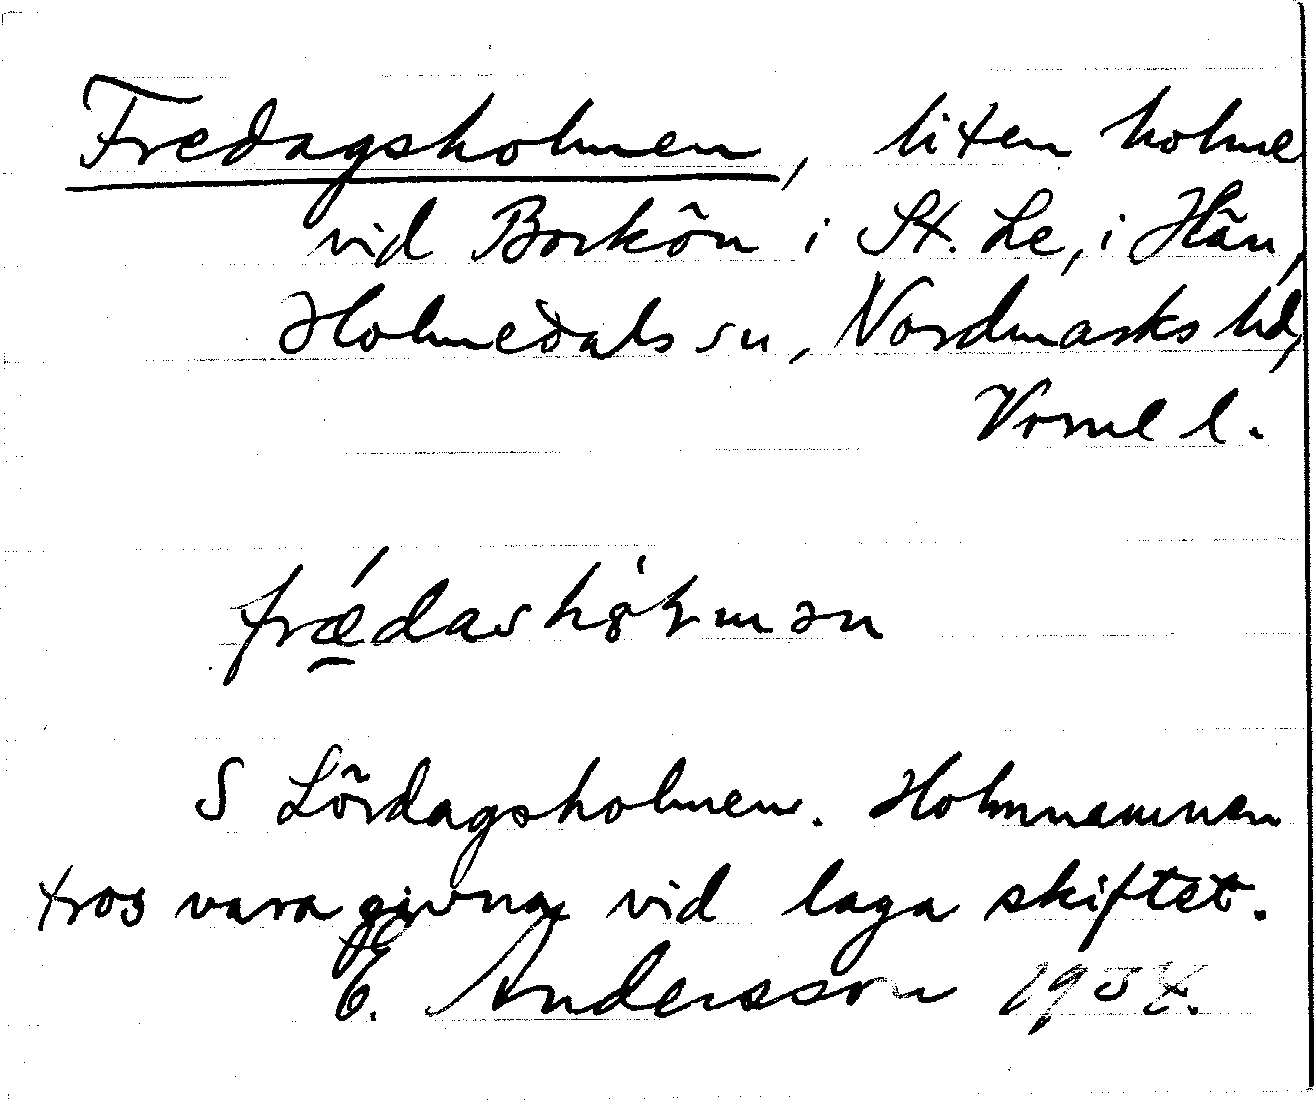 Fredagsholmen, liten holme
vid Borkön i St. Le, i Hån,
Holmedals sn, Nordmarks hd,
Vrml l.
S Lördagsholmen. Holmnamnen
tros vara givna vid laga skiftet.
E. Andersson 1934.